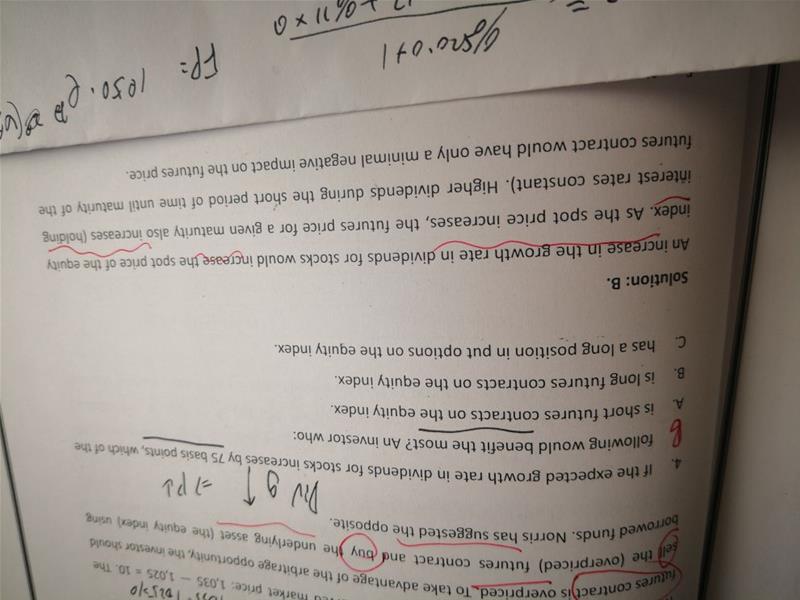 futures contract is overpriced. To take advantage of the arbitrage opportunity, the investor should
sell the (overpriced) futures contract and buy the underlying asset (the equity index) using
borrowed funds. Norris has suggested the opposite.
Div g ↑ ⇒ P↓
4. If the expected growth rate in dividends for stocks increases by 75 basis points, which of the
following would benefit the most? An investor who:
B
A. is short futures contracts on the equity index.
B. is long futures contracts on the equity index.
C. has a long position in put options on the equity index.
Solution: B.
An increase in the growth rate in dividends for stocks would increase the spot price of the equity
index. As the spot price increases, the futures price for a given maturity also increases (holding
interest rates constant). Higher dividends during the short period of time until maturity of the
futures contract would have only a minimal negative impact on the futures price.
FP=